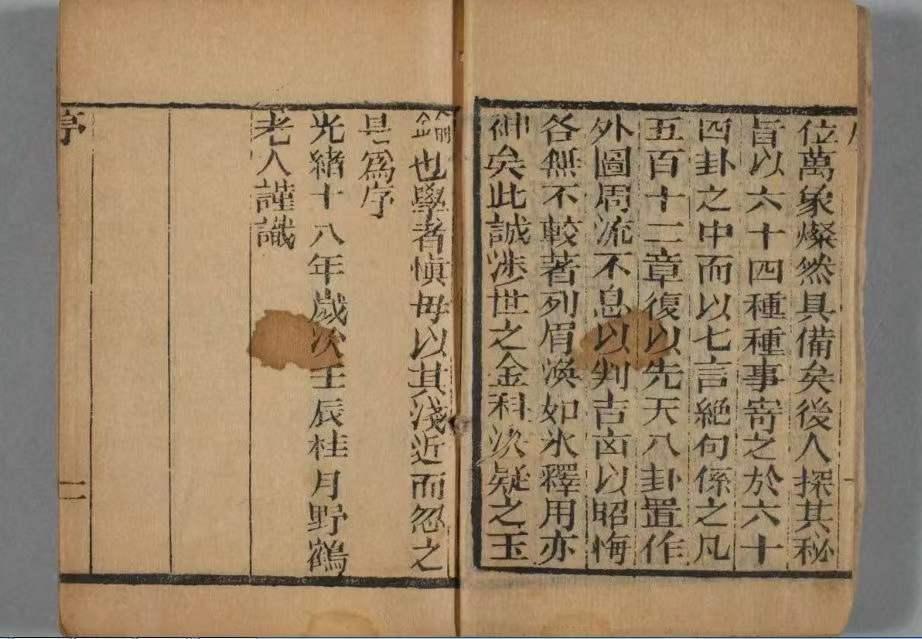 位萬象燦然具備矣後人探其秘
旨以六十四種種事寄之於六十
四卦之中而以七言絕句係之凡
五百十二章復以先天八卦置作
外圖周流不息以判吉凶以昭悔
吝無不較著列眉渙如氷釋用亦
神矣此誠涉世之金科決疑之玉
鑰也學者慎毋以其淺近而忽之
是爲序
光緒十八年歲次壬辰桂月野鶴
老人謹識
序
二